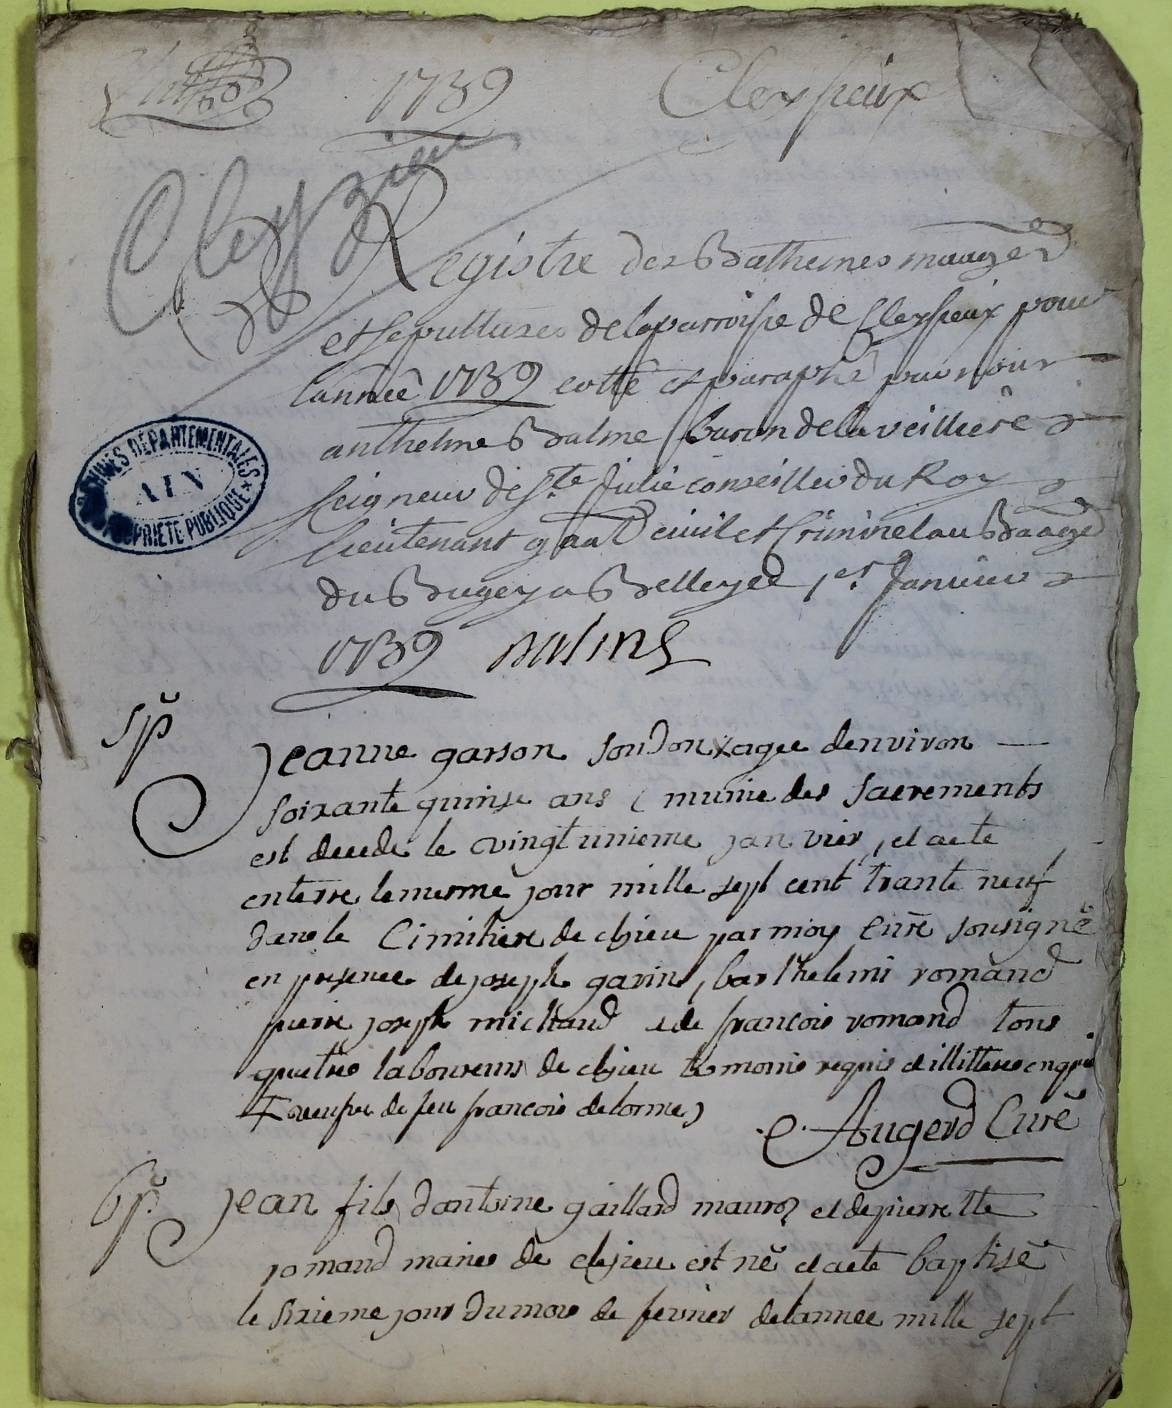 1739 Cleyssieux
Cleyzieu
Registre des Bathemes mariages
et sepultures de la parroisse de Cleyssieux pour
l'année 1739 cotté et paraphé par nous
anthelme Balme baron de la veilliere
seigneur de Ste Julie conseiller du Roy
lieutenant gnal civil et Criminel au Bāage
du Bugey a Belley le 1er Janvier
1739 Balme
ARCHIVES DEPARTEMENTALES
AIN
PROPRIETE PUBLIQUE
sp
Jeanne garson Jondon x agee denviron
soixante quinse ans munie des sacrements
est decede le vingt unieme janvier, et a ete
enterre le mesme jour mille sept cent trante neuf
dans le Cimitiere de clesieu par moy Curé sousigné
en presence de joseph garin, barthelemi romand
pierre joseph michaud et de francois romand tous
quatre laboureurs de clesieu temoins requis et illitteres enquis
x veufve de feu francois delorme
Augerd Curé
bp. Jean fils dantoine gaillard mauroz et de pierrette
romand maries de clesieu est né et a ete baptisé
le sixieme jour du mois de fevrier de lannee mille sept